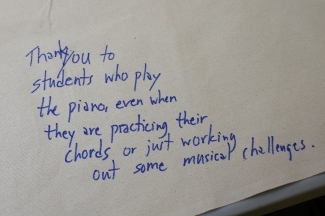 Thank you to
students who play
the piano, even when
they are practicing their
chords or just working
out some musical challenges.